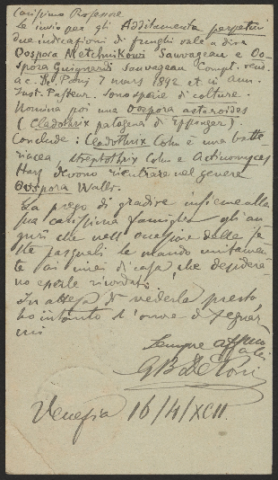 Carissimo Professore
Le invio per gli Additamenta perpetui
due indicazioni di funghi vale a dire
Oospora Metchnikowi Sauvageau e Oo-
spora Guignardi Sauvageau Compt. rend.
ac. d. Sc. Paris 7 mars 1892 et in Ann.
Inst. Pasteur. Sono specie di colture.
Nomina poi una Oospora asteroides
(Cladothrix patogena di Eppinger).
Conclude: Cladothrix Cohn è una batte-
riacea, Streptothrix Cohn e Actinomyces
Harz devono rientrare nel genere
Oospora Wallr.
La prego di gradire insieme alla
sua carissima famiglia gli au-
guri che nell'occasione delle fe-
ste pasquali le mando unitamente
ai miei di casa, che desidera-
no esserle ricordati.
In attesa di vederla presto,
ho intanto l'onore di segnar-
mi
sempre affmo
GB De Toni
Venezia 16/4/XCII.